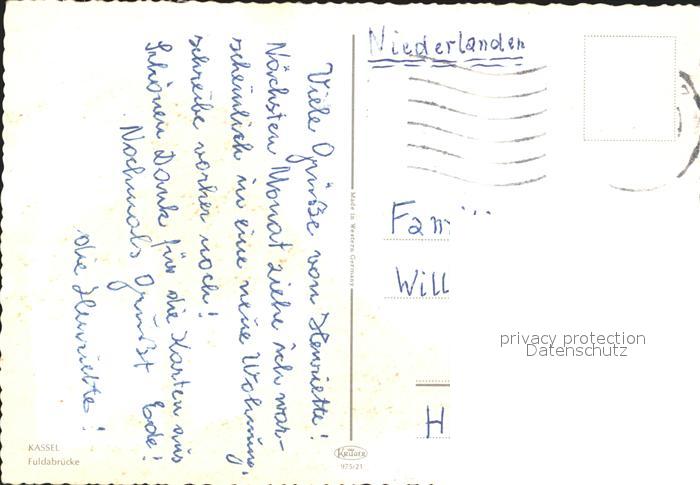 Niederlanden
Viele Grüße von Henriette!
Nächsten Monat ziehe ich war-
scheinlich in eine neue Wohnung,
schreibe vorher noch!
Schönen Dank für die Karten aus
Ede!
Nochmals Grüßt
die Henriette!
Made in Western Germany
Fam
Will
H
privacy protection
Datenschutz
KASSEL
Fuldabrücke
Krüger
975/21